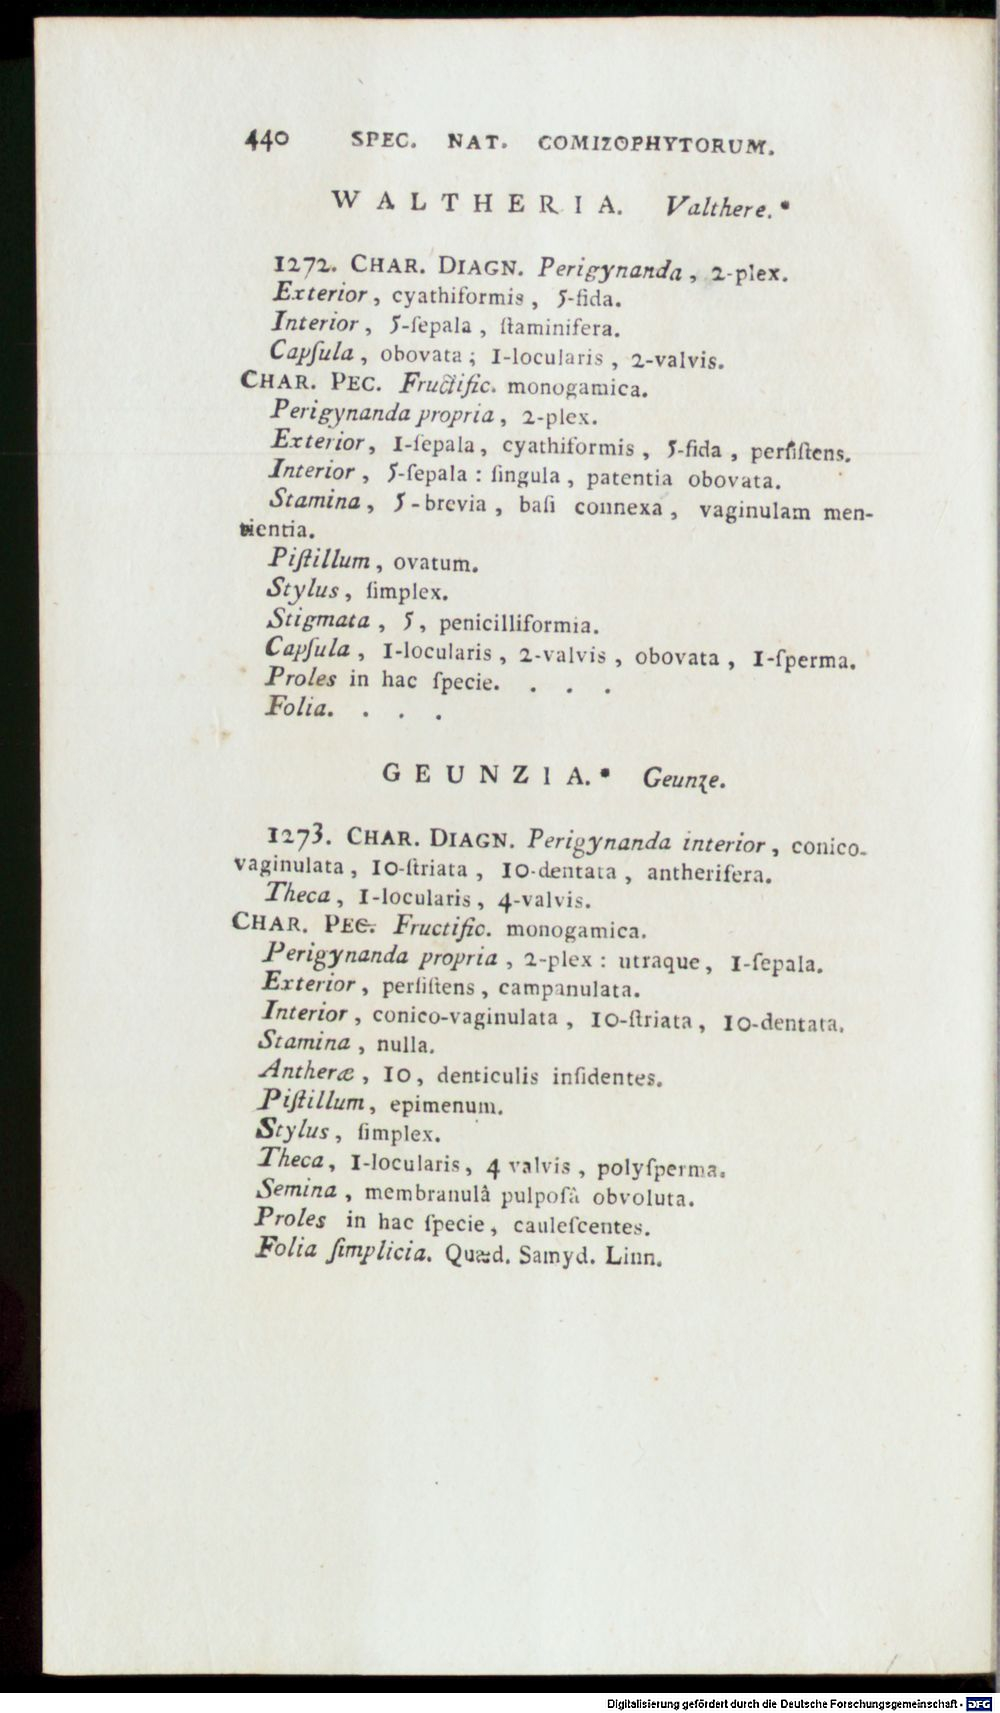 440 SPEC. NAT. COMIZOPHYTORUM.
WALTHERIA. Valthere.*
1272. CHAR. DIAGN. Perigynanda, 2-plex.
Exterior, cyathiformis, 5-fida.
Interior, 5-ſepala, ſtaminifera.
Capſula, obovata; 1-locularis, 2-valvis.
CHAR. PEC. Fructific. monogamica.
Perigynanda propria, 2-plex.
Exterior, 1-ſepala, cyathiformis, 5-fida, perſiſtens.
Interior, 5-ſepala: ſingula, patentia obovata.
Stamina, 5-brevia, baſi connexa, vaginulam men-
tientia.
Piſtillum, ovatum.
Stylus, ſimplex.
Stigmata, 5, penicilliformia.
Capſula, 1-locularis, 2-valvis, obovata, 1-ſperma.
Proles in hac ſpecie. . . .
Folia. . . .
GEUNZIA.* Geunze.
1273. CHAR. DIAGN. Perigynanda interior, conico-
vaginulata, 10-ſtriata, 10-dentata, antherifera.
Theca, 1-locularis, 4-valvis.
CHAR. PEC. Fructific. monogamica.
Perigynanda propria, 2-plex: utraque, 1-ſepala.
Exterior, perſiſtens, campanulata.
Interior, conico-vaginulata, 10-ſtriata, 10-dentata.
Stamina, nulla.
Antheræ, 10, denticulis inſidentes.
Piſtillum, epimenum.
Stylus, ſimplex.
Theca, 1-locularis, 4 valvis, polyſperma.
Semina, membranulâ pulpoſâ obvoluta.
Proles in hac ſpecie, cauleſcentes.
Folia ſimplicia. Quæd. Samyd. Linn.
Digitalisierung gefördert durch die Deutsche Forschungsgemeinschaft - DFG